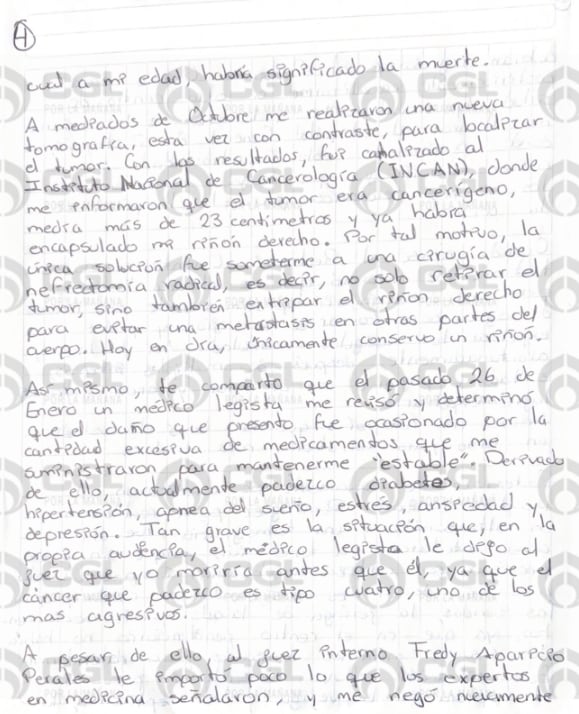 4
cual a mi edad, habría significado la muerte.
A mediados de Octubre me realizaron una nueva
tomografía, esta vez con contraste, para localizar
el tumor. Con los resultados, fui canalizado al
Instituto Nacional de Cancerología (INCAN), donde
me informaron que el tumor era cancerígeno,
medía más de 23 centímetros y ya había
encapsulado mi riñón derecho. Por tal motivo, la
única solución fue someterme a una cirugía de
nefrectomía radical, es decir, no solo retirar el
tumor, sino también extirpar el riñón derecho
para evitar una metastasis en otras partes del
cuerpo. Hoy en día, únicamente conservo un riñón.
Asi mismo, te comparto que el pasado 26 de
Enero un médico legista me revisó y determinó
que el daño que presento, fue ocasionado por la
cantidad excesiva de medicamentos que me
suministraron para mantenerme "estable". Derivado
de ello, actualmente padezco diabetes,
hipertensión, apnea del sueño, estrés, ansiedad y
depresión. Tan grave es la situación que, en la
propia audencia, el médico legista le dijo al
juez que yo moriría antes que él, ya que el
cáncer que padezco es tipo cuatro, uno de los
mas agresivos.
A pesar de ello al juez interno Fredy Aparicio
Perales le importó poco lo que los expertos
en medicina señalaron, y me negó nuevamente
CGL
POR LA MAÑANA